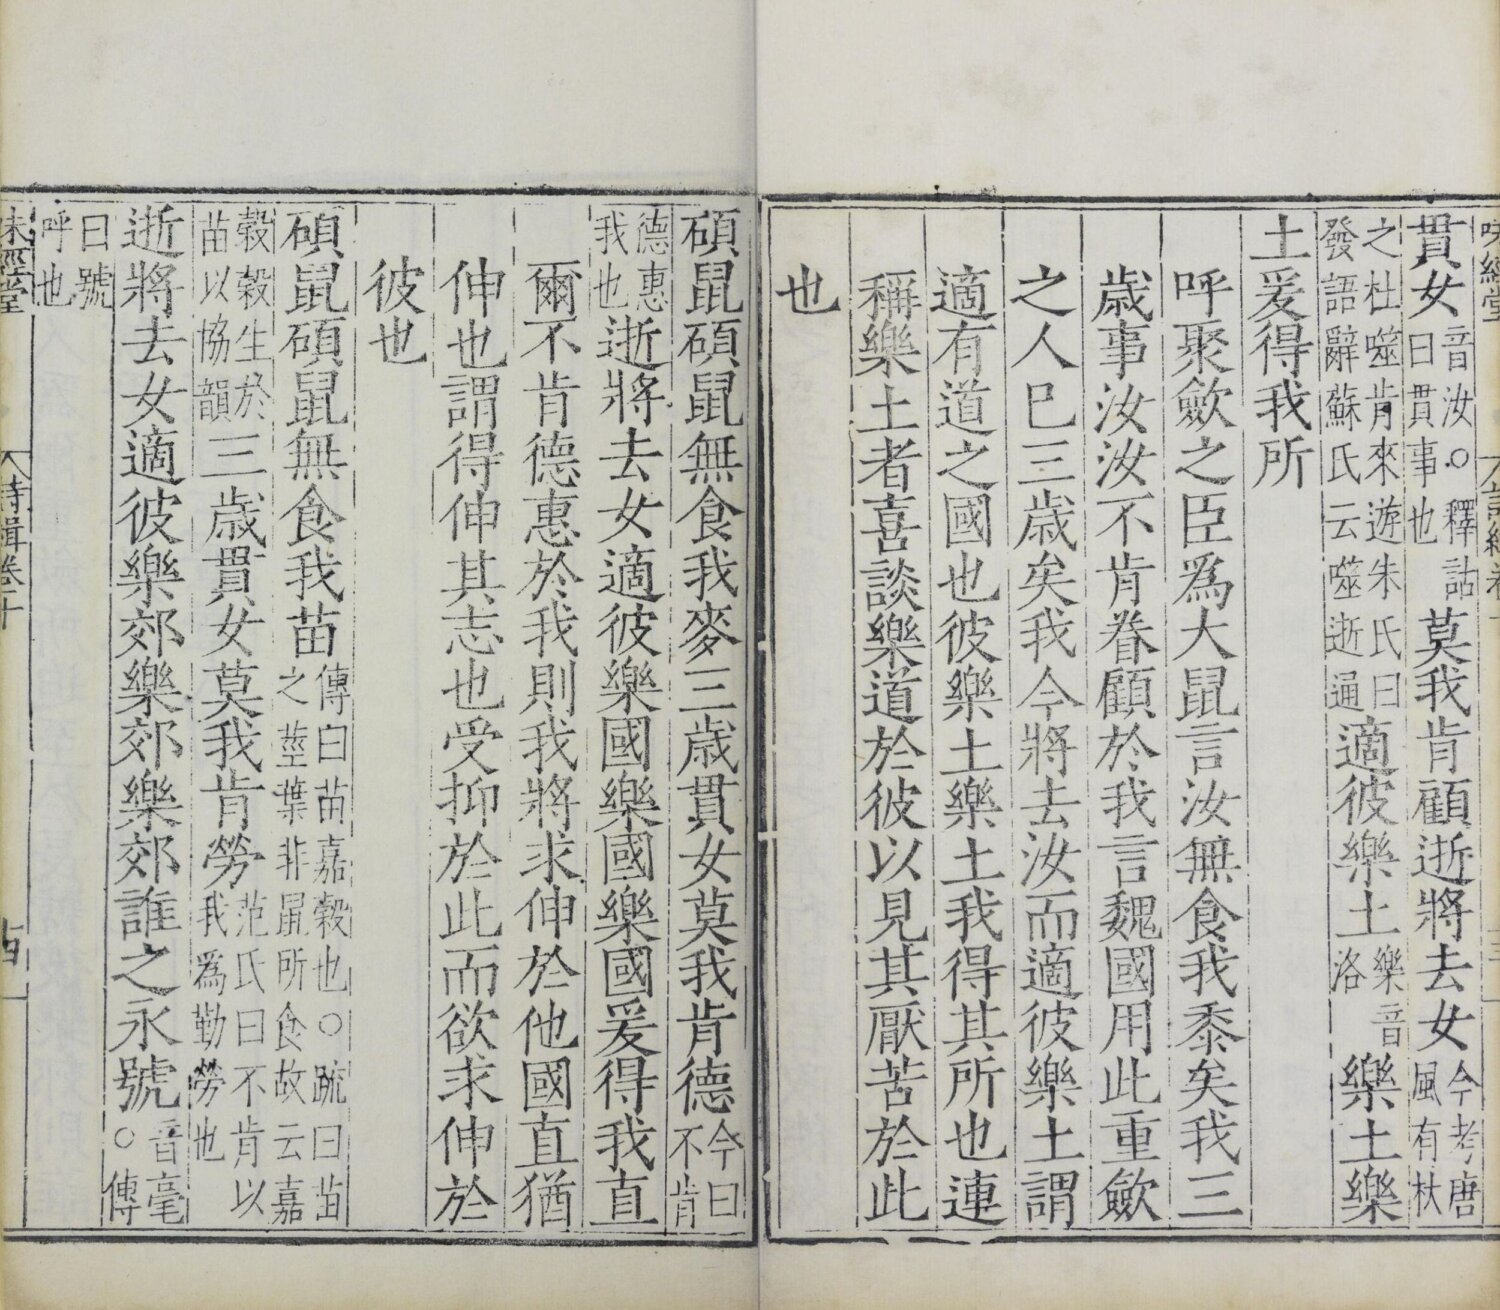 貫女音汝○釋詁曰貫事也莫我肯顧逝將去女今考唐風有杕
之杜噬肯來遊朱氏曰發語辭蘇氏云噬逝通適彼樂土樂音洛樂土樂
土爰得我所
呼聚斂之臣爲大鼠言汝無食我黍矣我三
歲事汝汝不肯眷顧於我言魏國用此重斂
之人已三歲矣我今將去汝而適彼樂土謂
適有道之國也彼樂土樂土我得其所也連
稱樂土者喜談樂道於彼以見其厭苦於此
也
碩鼠碩鼠無食我麥三歲貫女莫我肯德今曰不肯
德惠我也逝將去女適彼樂國樂國樂國爰得我直
爾不肯德惠於我則我將求伸於他國直猶
伸也謂得伸其志也受抑於此而欲求伸於
彼也
碩鼠碩鼠無食我苗傳曰苗嘉穀也○疏曰苗之莖葉非鼠所食故云嘉
穀穀生於苗以協韻三歲貫女莫我肯勞范氏曰不肯以我為勤勞也
逝將去女適彼樂郊樂郊樂郊誰之永號音毫○傳
曰號呼也
味經堂 詩緝卷十